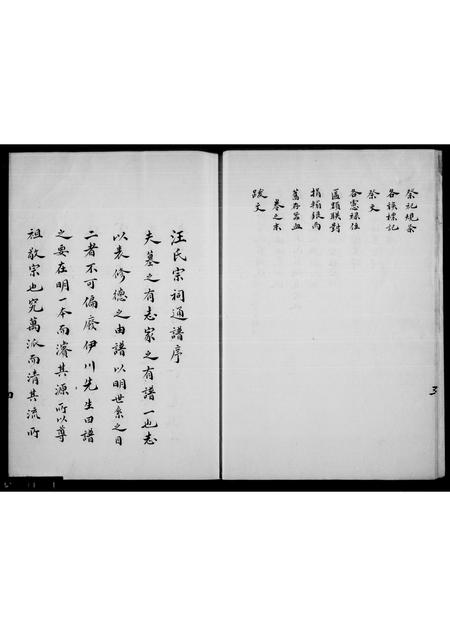 祭祀規条
各族標記
祭文
各憲祿位
匾額联對
捐輸銀両
舊存器皿
卷之末
跋文
3
汪氏宗祠通譜序
夫墓之有志家之有譜一也志
以表修德之由譜以明世系之目
二者不可偏廢伊川先生曰譜
之要在明一本而濬其源所以尊
祖敬宗也究萬派而清其流所